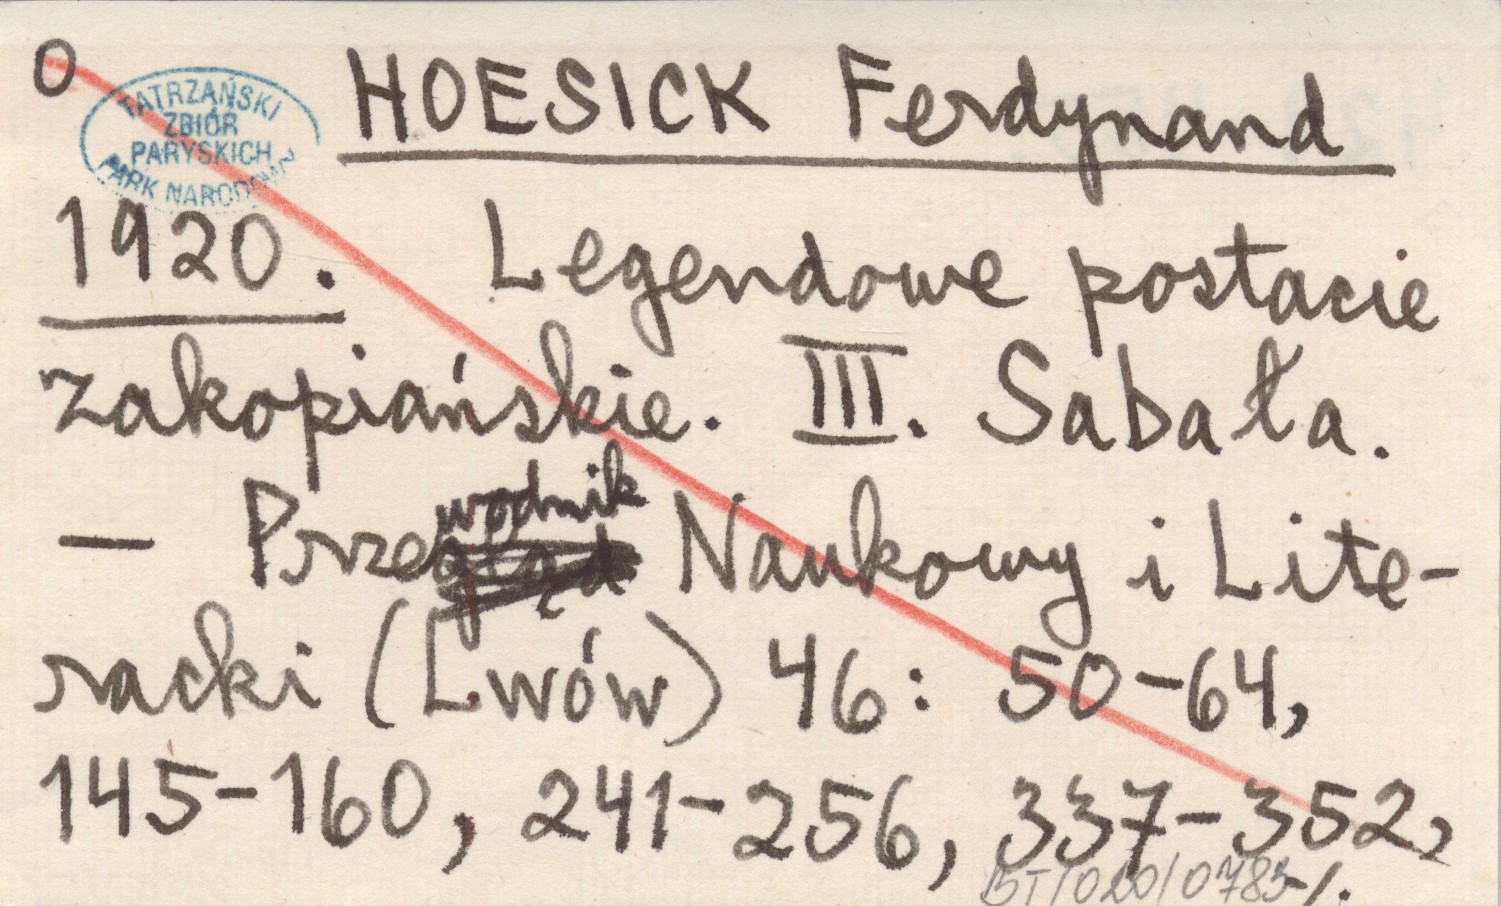 O
TATRZAŃSKI
ZBIÓR
PARYSKICH
PARK NARODOWY
HOESICK Ferdynand
1920. Legendowe postacie
zakopiańskie. III. Sabała.
— Przewodnik Naukowy i Lite-
racki (Lwów) 46: 50-64,
145-160, 241-256, 337-352,
BT/020/0783-/.